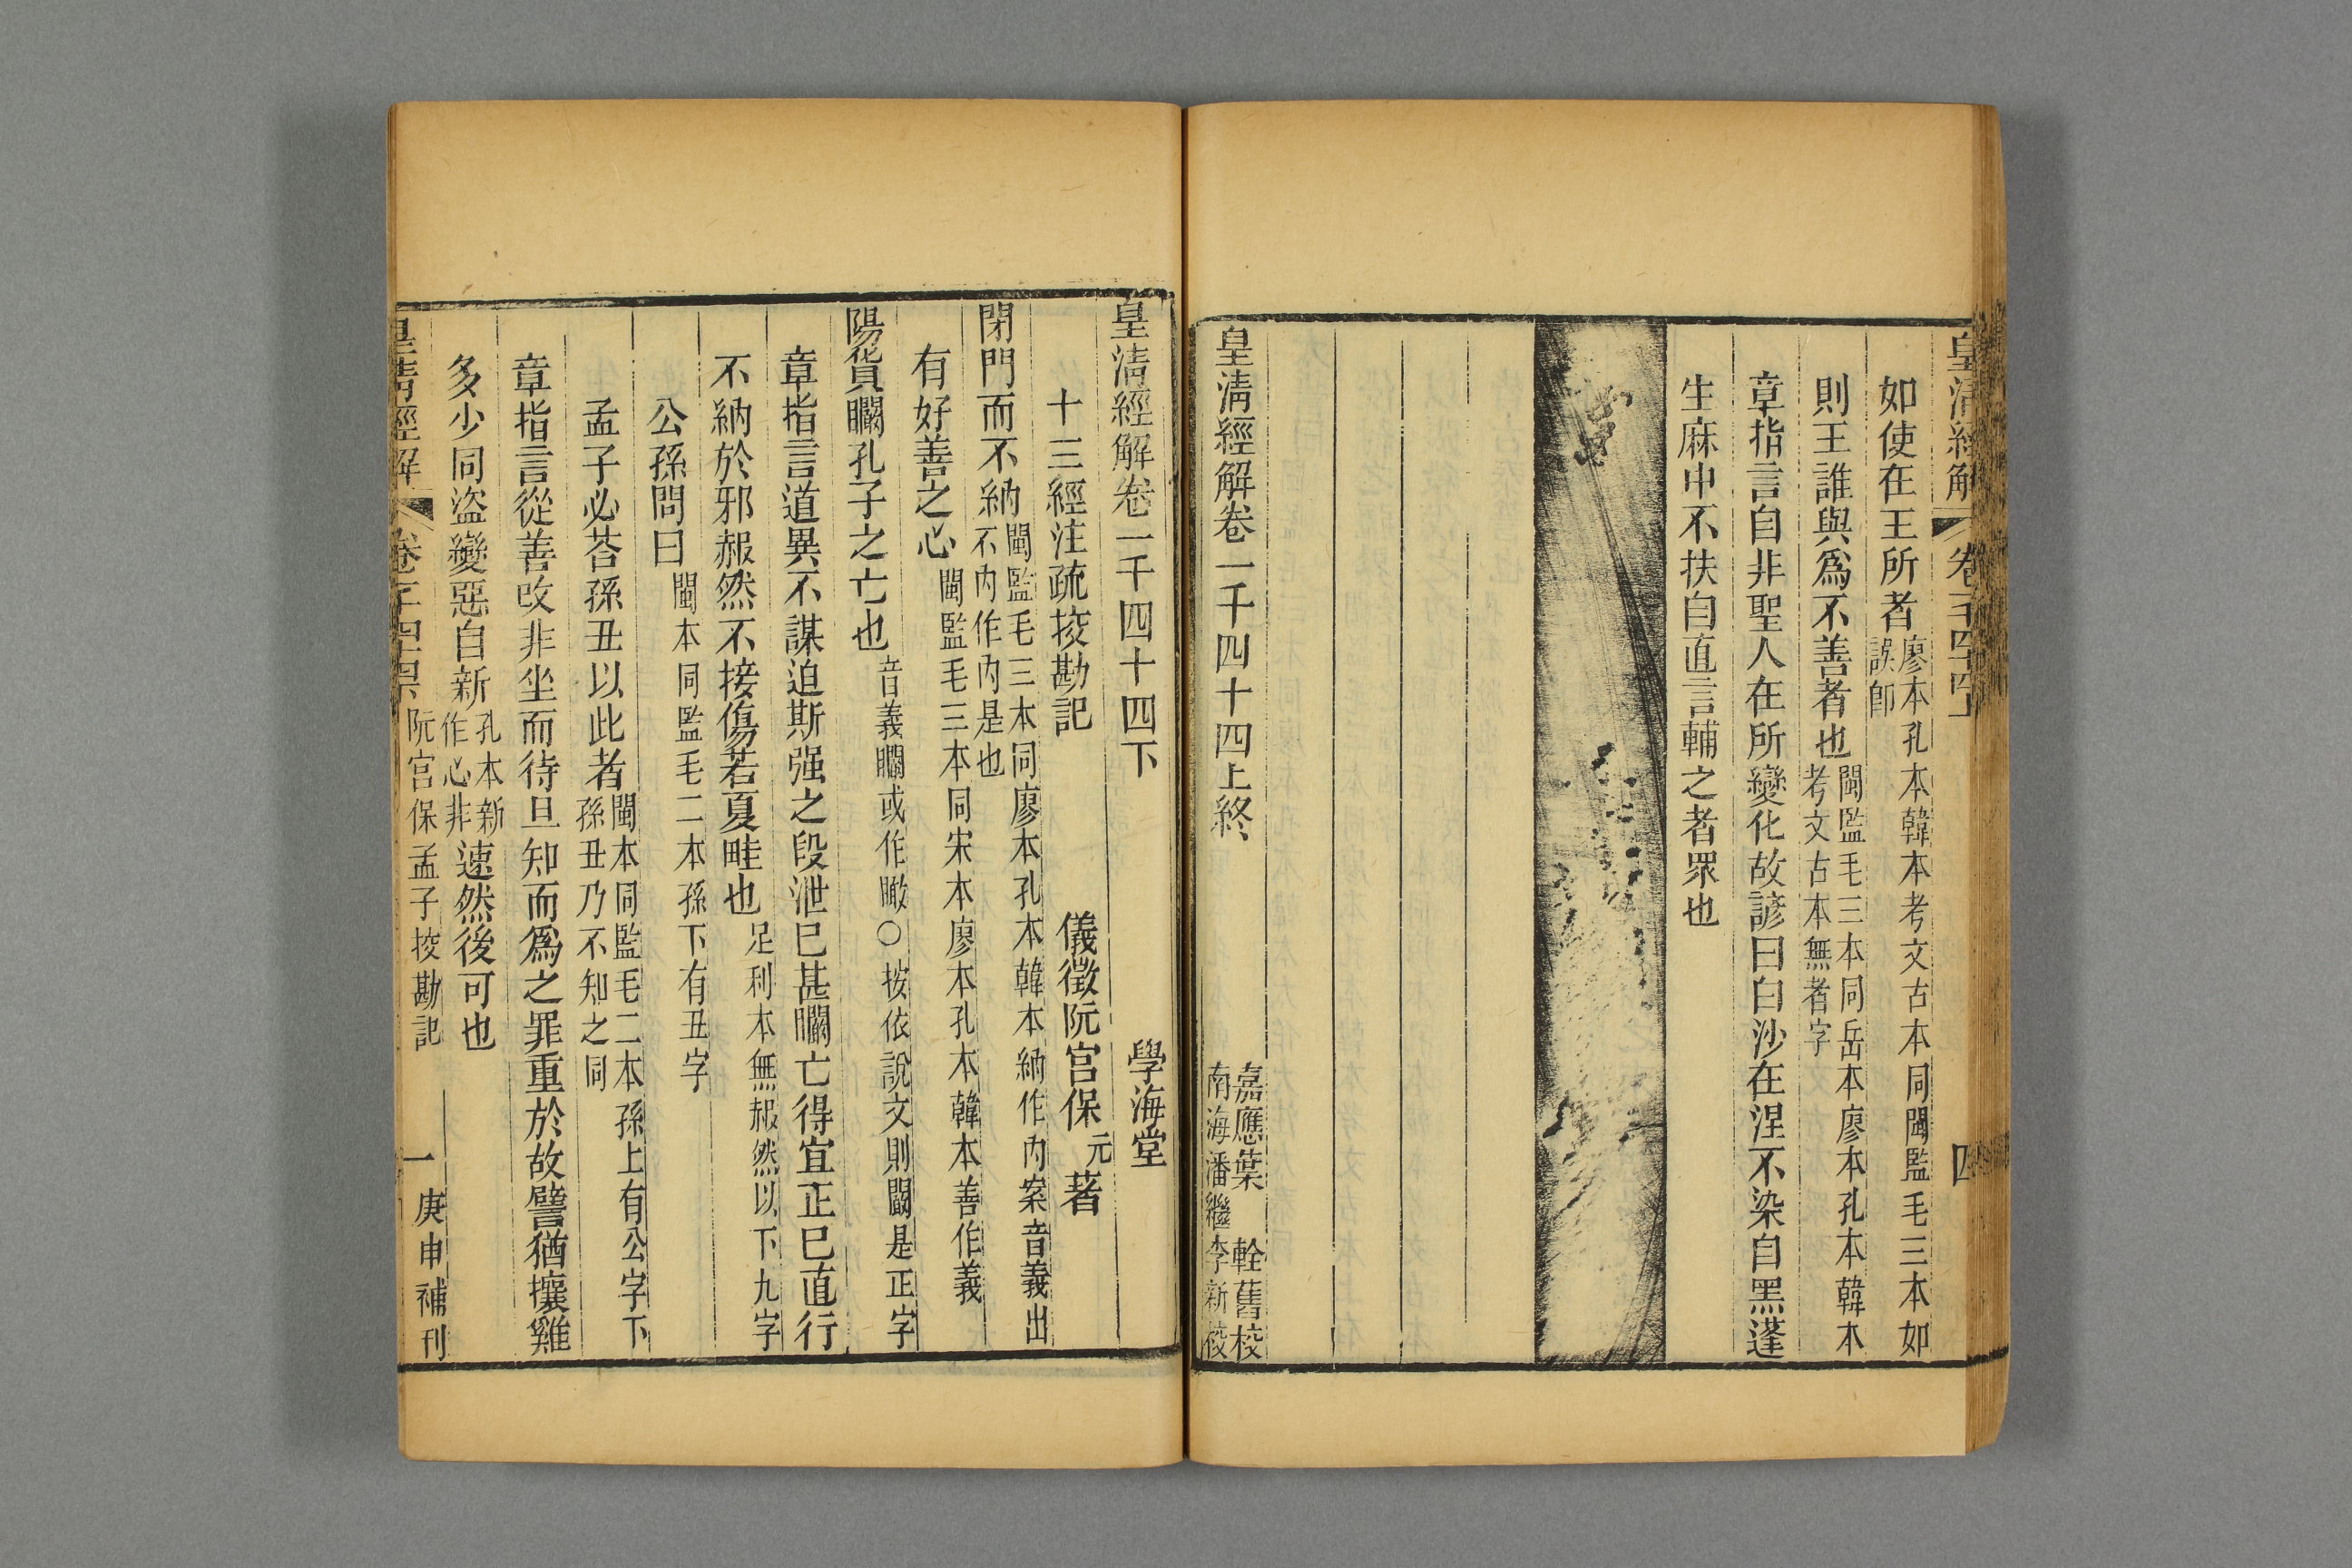 皇清經解 卷一千四十四上 四
如使在王所者廖本孔本韓本考文古本同閩監毛三本如
誤卽
則王誰與爲不善者也閩監毛三本同岳本廖本孔本韓本
考文古本無者字
章指言自非聖人在所變化故諺曰白沙在涅不染自黑蓬
生麻中不扶自直言輔之者眾也
皇清經解卷一千四十四上終
嘉應葉 輇舊校
南海潘繼李新校
皇清經解卷一千四十四下 學海堂
十三經注疏挍勘記 儀徵阮宮保元著
閉門而不納閩監毛三本同廖本孔本韓本納作內案音義出
不內作內是也
有好善之心閩監毛三本同宋本廖本孔本韓本善作義
陽貨矙孔子之亡也音義矙或作瞰○按依說文則闞是正字
章指言道異不謀迫斯强之段泄已甚矙亡得宜正已直行
不納於邪赧然不接傷若夏畦也足利本無赧然以下九字
公孫問曰閩本同監毛二本孫下有丑字
孟子必荅孫丑以此者閩本同監毛二本孫上有公字下
孫丑乃不知之同
章指言從善改非坐而待旦知而爲之罪重於故譬猶攘雞
多少同盜變惡自新孔本新
作心非速然後可也
皇清經解 阮宮保孟子挍勘記 一 庚申補刊